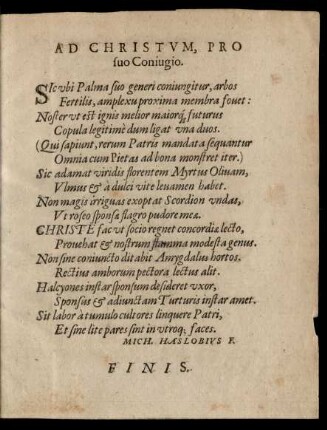 AD CHRISTVM, PRO
suo Coniugio.
SIcvbi Palma suo generi coniungitur, arbos
Fertilis, amplexu proxima membra fouet:
Noster vt est ignis melior maiorq; futurus
Copula legitimè dum ligat vna duos.
(Qui sapiunt, rerum Patris mandata sequantur
Omnia cum Pietas ad bona monstret iter.)
Sic adamat viridis florentem Myrtus Oliuam,
Vlmus & à dulci vite leuamen habet.
Non magis irriguas exoptat Scordion vndas,
Vt roseo sponsa flagro pudore mea.
CHRISTE fac vt socio regnet concordia lecto,
Prouehat & nostrum flamma modesta genus.
Non sine coniuncto ditabit Amygdalus hortos,
Rectius amborum pectora lectus alit.
Halcyones instar sponsum desideret vxor,
Sponsus & adiunctam Turturis instar amet.
Sit labor à tumulo cultores linquere Patri,
Et sine lite pares sint in vtroq; faces.
MICH. HASLOBIVS F.
FINIS.